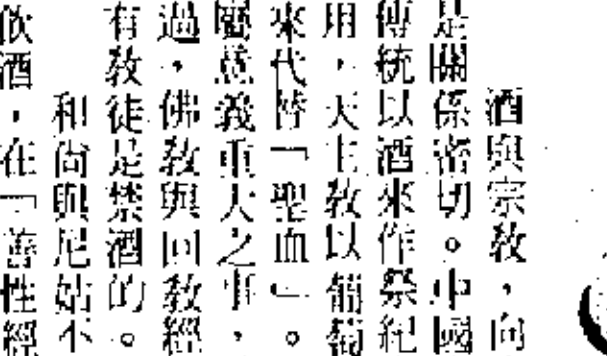 酒與宗教，向
是關係密切。中國
傳統以酒來作祭紀
用，天主教以葡萄
來代替「聖血」。
屬意義重大之事，
過，佛教與回教經
有教徒是禁酒的。
和尚與尼姑不
飲酒，在「善性經